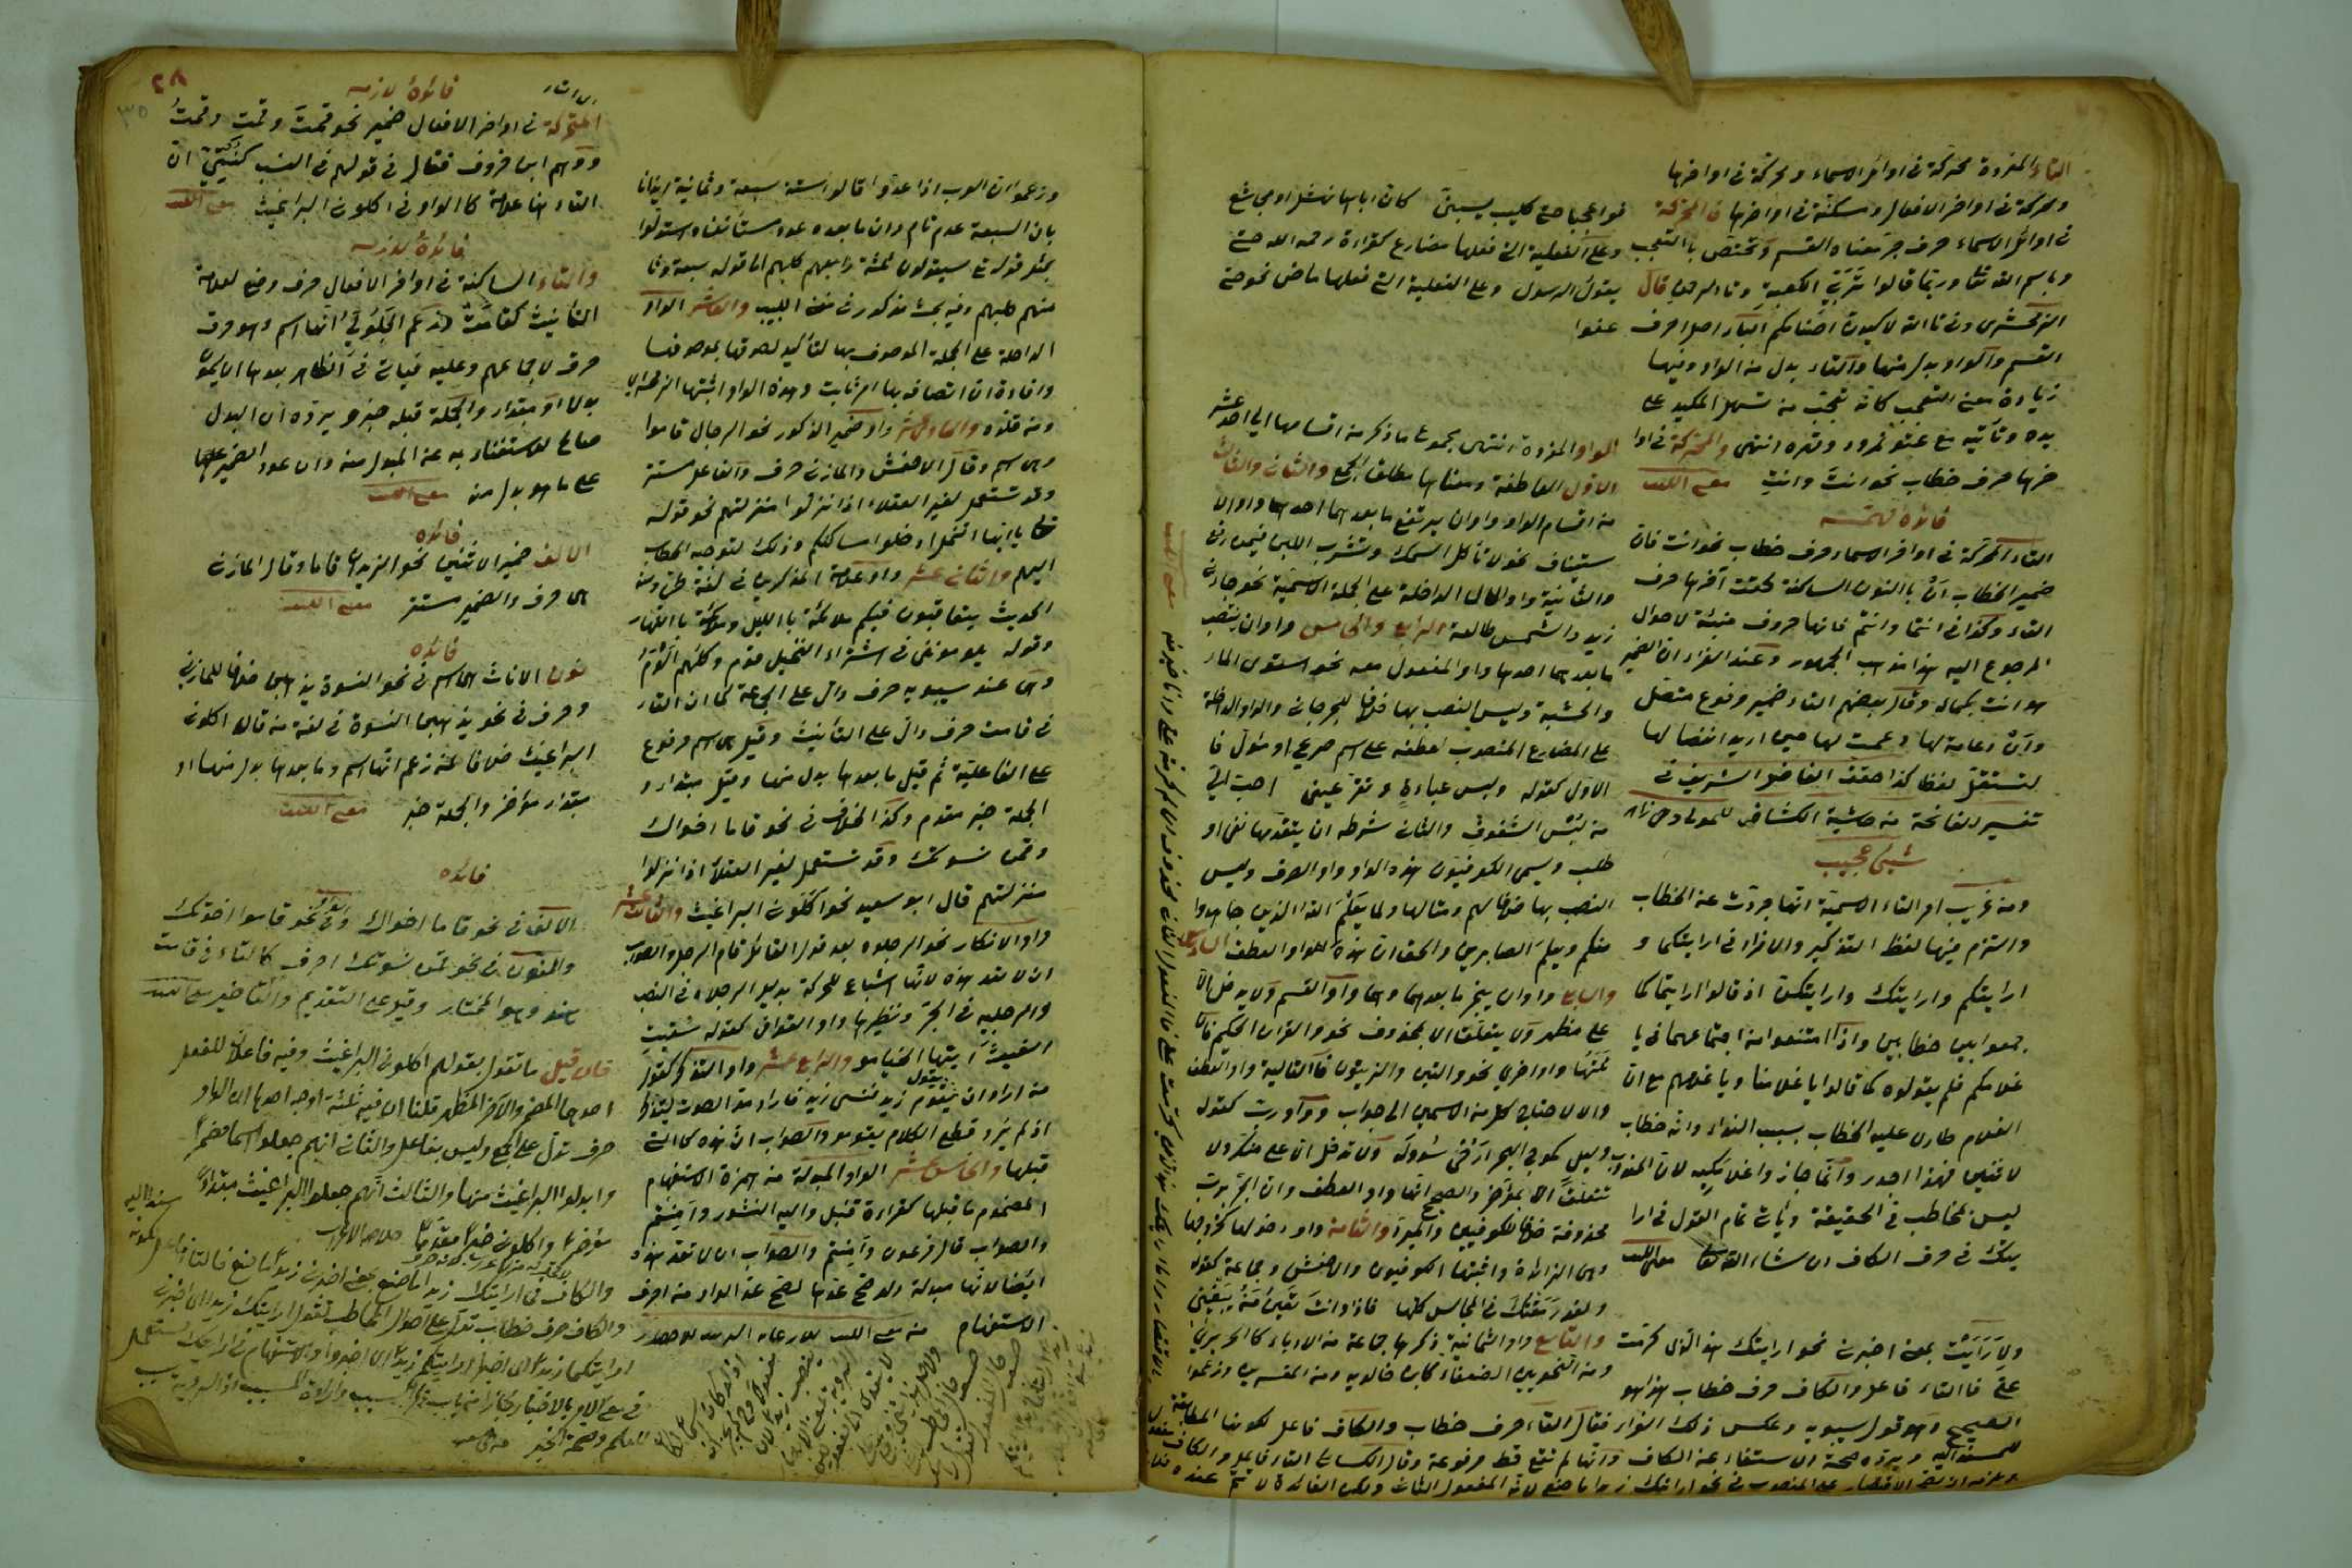 التاء المفردة محركة في اوائل الاسماء ومحركة في اواخرها
ومحركة في اواخر الافعال ومسكنة في اواخرها فالمحركة
في اوائل الاسماء حرف جر معناه القسم وتختص بالتعجب
وباسم الله تعالى وربما قالوا تربي وترب الكعبة وتالرحمن قال
الزمخشري في وتالله لاكيدن اصنامكم الباء اصل احرف
القسم والواو بدل منها والتاء بدل من الواو وفيها
زيادة معنى التعجب كانه تعجب من تسهل الكيد على
يده وتأتيه مع عتو نمرود وقهره انتهى والمحركة في اوا
خرها حرف خطاب نحو انت وانت مغني اللبيب
فائدة مهمة
التاء المحركة في اواخر الاسماء حرف خطاب نحو انت فان
ضمير الخطاب ان بالنون الساكنة لحقت آخرها حرف
التاء وكذا في انتما وانتم فانها حروف مبينة لاحوال
المرجوع اليه هذا مذهب الجمهور وعند الفراء ان الضمير
هو انت بكماله وقال بعضهم التاء ضمير مرفوع متصل
وان دعامة لها دعمت لها حين اريد انفصالها
لتستقل لفظا كذا حققه الفاضل الشريف في
تفسير الفاتحة من حاشية الكشاف
شيئ عجيب
ومن غريب امر التاء الاسمية انها جردت عن الخطاب
والتزم فيها لفظ التذكير والافراد في ارايتكما و
ارايتكم وارايتك وارايتكن اذ قالوا ارايتما كما
جمعوا بين خطابين واذا امتنعوا من اجتماعهما في يا
غلامكم فلم يقولوه كما قالوا يا غلامنا ويا غلامهم مع ان
الغلام طارئ عليه الخطاب بسبب النداء وانه خطاب
لاثنين فهذا اجدر وانما جاز واغلامكيه لان المندوب
ليس بمخاطب في الحقيقة ويأتي تمام القول في ارا
يتك في حرف الكاف ان شاء الله تعالى مغني اللبيب
ولا رأيت بمعنى اخبرني نحو ارايتك هذا الذي كرمت
علي فالتاء فاعل والكاف حرف خطاب هذا هو
الصحيح وهو قول سيبويه وعكس ذلك الفراء فقال التاء حرف خطاب والكاف فاعل لكونها المطابقة
للمسند اليه ويرده صحة الاستغناء عن الكاف وانها لم تقع قط مرفوعة وقال الكسائي التاء فاعل والكاف مفعول
فوا عجبا حتى كليب يسبني كان اباها نهشل او مجاشع
وعلى الفعلية التي فعلها مضارع كقراءة رحمه الله حتى
يقول الرسول وعلى الفعلية التي فعلها ماض نحو حتى
عفوا
الواو المفردة انتهى مجموع ما ذكر من اقسامها الى احد عشر
الاول العاطفة ومعناها مطلق الجمع والثاني والثالث
من اقسام الواو واوان يرتفع ما بعدهما احدهما واو الا
ستيناف نحو لا تأكل السمك وتشرب اللبن فيمن رفع
والثانية واو الحال الداخلة على الجملة الاسمية نحو جاءني
زيد والشمس طالعة الرابع والخامس واوان ينتصب
ما بعدهما احدهما واو المفعول معه نحو استوى الماء
والخشبة وليس النصب بها خلافا للجرجاني والواو الداخلة
على المضارع المنصوب لعطفه على اسم صريح او مؤول فا
لاول كقوله ولبس عباءة وتقر عيني احب الي
من لبس الشفوف والثاني شرطه ان يتقدمها نفي او
طلب ويسمى الكوفيون هذه الواو واو الصرف وليس
النصب بها خلافا لهم ومثالها ولما يعلم الله الذين جاهدوا
منكم ويعلم الصابرين والحق ان هذه الواو واو العطف السادس
والسابع واوان ينجر ما بعدهما وهما واو القسم ولا يدخل الا
على مظهر ولا يتعلق الا بمحذوف نحو والقران الحكيم فان
تلتها واو اخرى نحو والتين والزيتون فالتالية واو العطف
والا لاحتاج كل من الاسمين الى جواب وواو رب كقوله
وليل كموج البحر ارخى سدوله ولا تدخل الا على منكر ولا
تتعلق الا بمؤخر والصحيح انها واو العطف وان الجر برب
محذوفة خلافا للكوفيين والمبرد والثامن واو دخولها كخروجها
وهي الزائدة واثبتها الكوفيون والاخفش وجماعة كقوله
ولقد رمقتك في المجالس كلها فاذا وانت تعين من يبغيني
والتاسع واو الثمانية ذكرها جماعة من الادباء كالحريري
ومن النحويين الضعفاء كابن خالويه ومن المفسرين وزعموا
وزعموا ان العرب اذا عدوا قالوا ستة سبعة وثمانية ايذانا
بان السبعة عدد تام وان ما بعده عدد مستأنف واستدلوا
بمثل قوله تعالى سيقولون ثلثة رابعهم كلبهم الى قوله سبعة وثا
منهم كلبهم وفيه بحث مذكور في مغني اللبيب والعاشر الواو
الداخلة على الجملة الموصوف بها لتأكيد لصوقها بموصوفها
وافادة ان اتصافه بها امر ثابت وهذه الواو اثبتها الزمخشري
ومن قلده والحادي عشر واو ضمير الذكور نحو الرجال قاموا
وهي اسم وقال الاخفش والمازني حرف والفاعل مستتر
وقد تستعمل لغير العقلاء اذا نزلوا منزلتهم نحو قوله
تعالى يا ايها النمل ادخلوا مساكنكم وذلك لتوجيه الخطاب
اليهم والثاني عشر واو علامة المذكرين في لغة طي ومنه
الحديث يتعاقبون فيكم ملائكة بالليل وملائكة بالنهار
وقوله يلومونني في اشتراء النخيل قوم وكلهم الوم
وهي عند سيبويه حرف دال على الجماعة كما ان التاء
في قامت حرف دال على التأنيث وقيل هي اسم مرفوع
على الفاعلية ثم قيل ما بعدها بدل منها وقيل مبتداء و
الجملة خبر مقدم وكذا الخلاف في نحو قاما اخواك
وقمن نسوتك وقد تستعمل لغير العقلاء اذا نزلوا
منزلتهم قال ابو سعيد نحو اكلوني البراغيث والثالث عشر
واو الانكار نحو الرجلوه بعد قول القائل قام الرجل والصواب
ان لا تعد هذه لانها اشباع للحركة بدليل الرجلاه في النصب
والرجليه في الجر ونظيرها واو القوافي كقوله سقيت
الغيث ايتها الخيامو والرابع عشر واو التذكر كقول
من اراد ان يقول يقوم زيد فنسى زيد فاراد مد الصوت ليتذكر
اذ لم يرد قطع الكلام يقومو والصواب ان هذه كالتي
قبلها والخامس عشر الواو المبدلة من همزة الاستفهام
المضموم ما قبلها كقراءة قنبل واليه النشور وامنتم
والصواب قال فرعون وامنتم والصواب ان لا تعد هذه
ايضا لانها مبدلة ولو صح عدها لصح عد الواو من احرف
الاستفهام
٢٨
٣٥
فائدة لازمه
المتحركة في اواخر الافعال ضمير نحو قمت وقمت وقمت
ووهم ابن خروف فقال في قولهم في النسب كنتي ان
التاء هنا علامة كالواو في اكلوني البراغيث مغني اللبيب
فائدة لازمه
والتاء الساكنة في اواخر الافعال حرف وضع لعلامة
التأنيث كقامت وزعم الجلولي انها اسم وهو خرق
خرق لاجماعهم وعليه فيأتي في الظاهر بعدها ان يكون
بدلا او مبتداء والجملة قبله خبر ويرده ان البدل
صالح للاستغناء به عن المبدل منه وان عود الضمير
على ما هو بدل منه مغني اللبيب
فائده
الالف ضمير الاثنين نحو الزيدان قاما وقال المازني
هي حرف والضمير مستتر مغني اللبيب
فائده
نون الاناث هي اسم في نحو النسوة يذهبن خلافا للمازني
وحرف في نحو يذهبن النسوة في لغة من قال اكلوني
البراغيث خلافا لمن زعم انها اسم وما بعدها بدل منها او
مبتداء مؤخر والجملة خبر مغني اللبيب
فائده
الالف في نحو قاما اخواك والواو في نحو قاموا اخوتك
والنون في نحو قمن نسوتك احرف كالتاء في قامت
هند وهو المختار وقيل على التقديم والتأخير مغني اللبيب
فان قيل ما تقول بقولهم اكلوني البراغيث وفيه فاعلان للفعل
احدهما المضمر والآخر المظهر قلنا ان فيه ثلثة اوجه احدها ان الواو
حرف تدل على الجمع وليس بفاعل والثاني انهم جعلوا اسما مضمرا
وابدلوا البراغيث منها والثالث انهم جعلوا البراغيث مبتداء
مؤخرا واكلوني خبرا مقدما
والكاف حرف خطاب تدل على احوال المخاطب